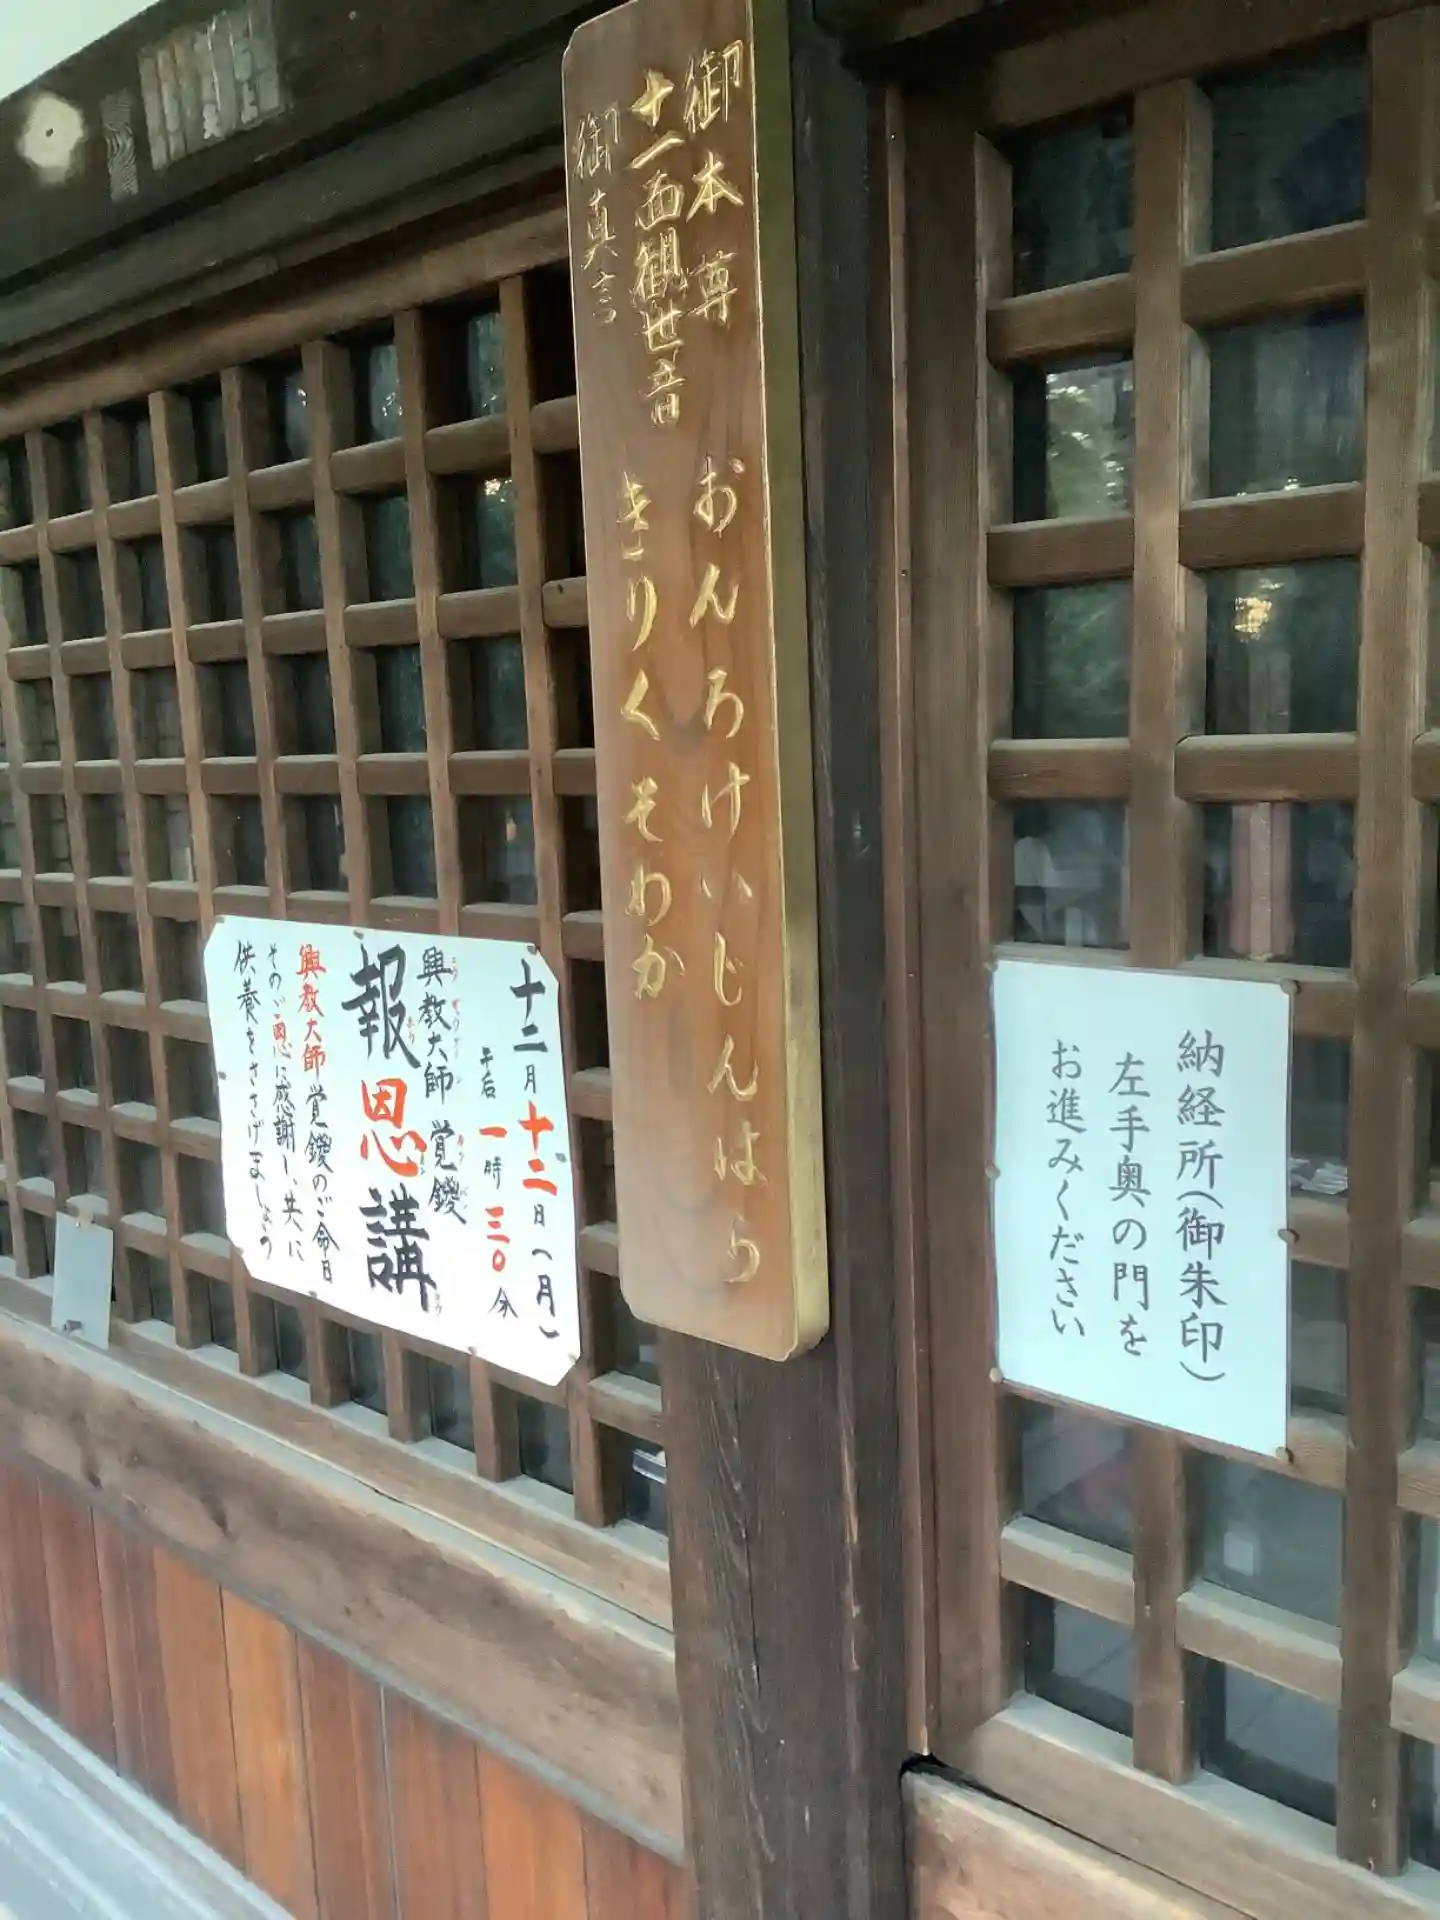 納経所(御朱印)
左手奥の門を
お進みください
御本尊
十一面観世音
御真言
おんろけいじんばら
きりくそわか
十二月十二日(月)
午后一時三〇分
興教大師 覚鑁
報恩講
興教大師 覚鑁のご命日
そのご恩に感謝し、共に
供養をささげましょう